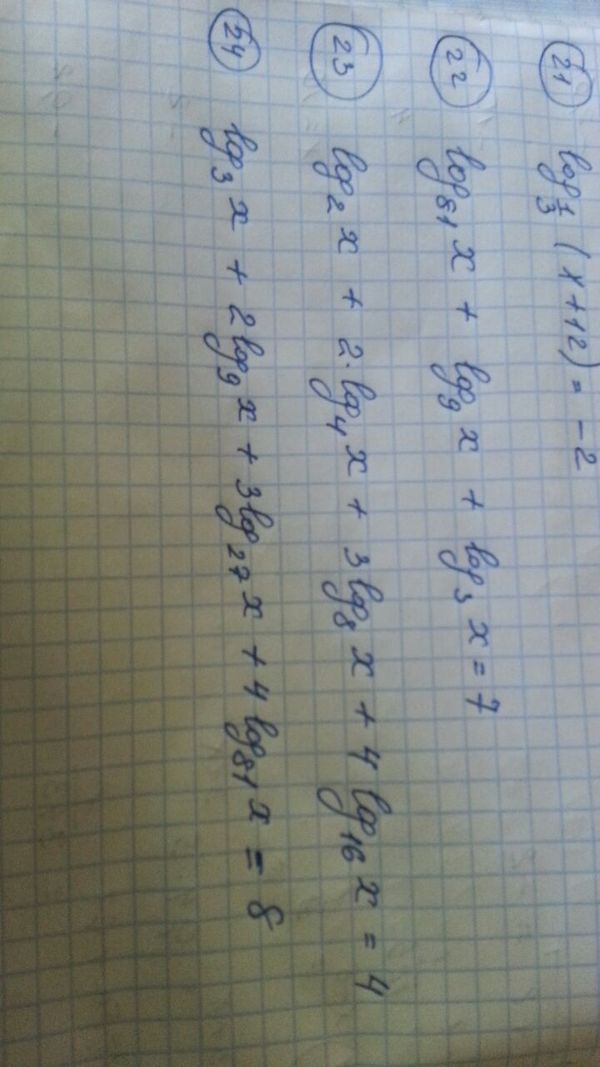 21 log 1/3 (x+12) = -2
22 log81 x + log9 x + log3 x = 7
23 log2 x + 2·log4 x + 3log8 x + 4log16 x = 4
24 log3 x + 2log9 x + 3log27 x + 4log81 x = 8